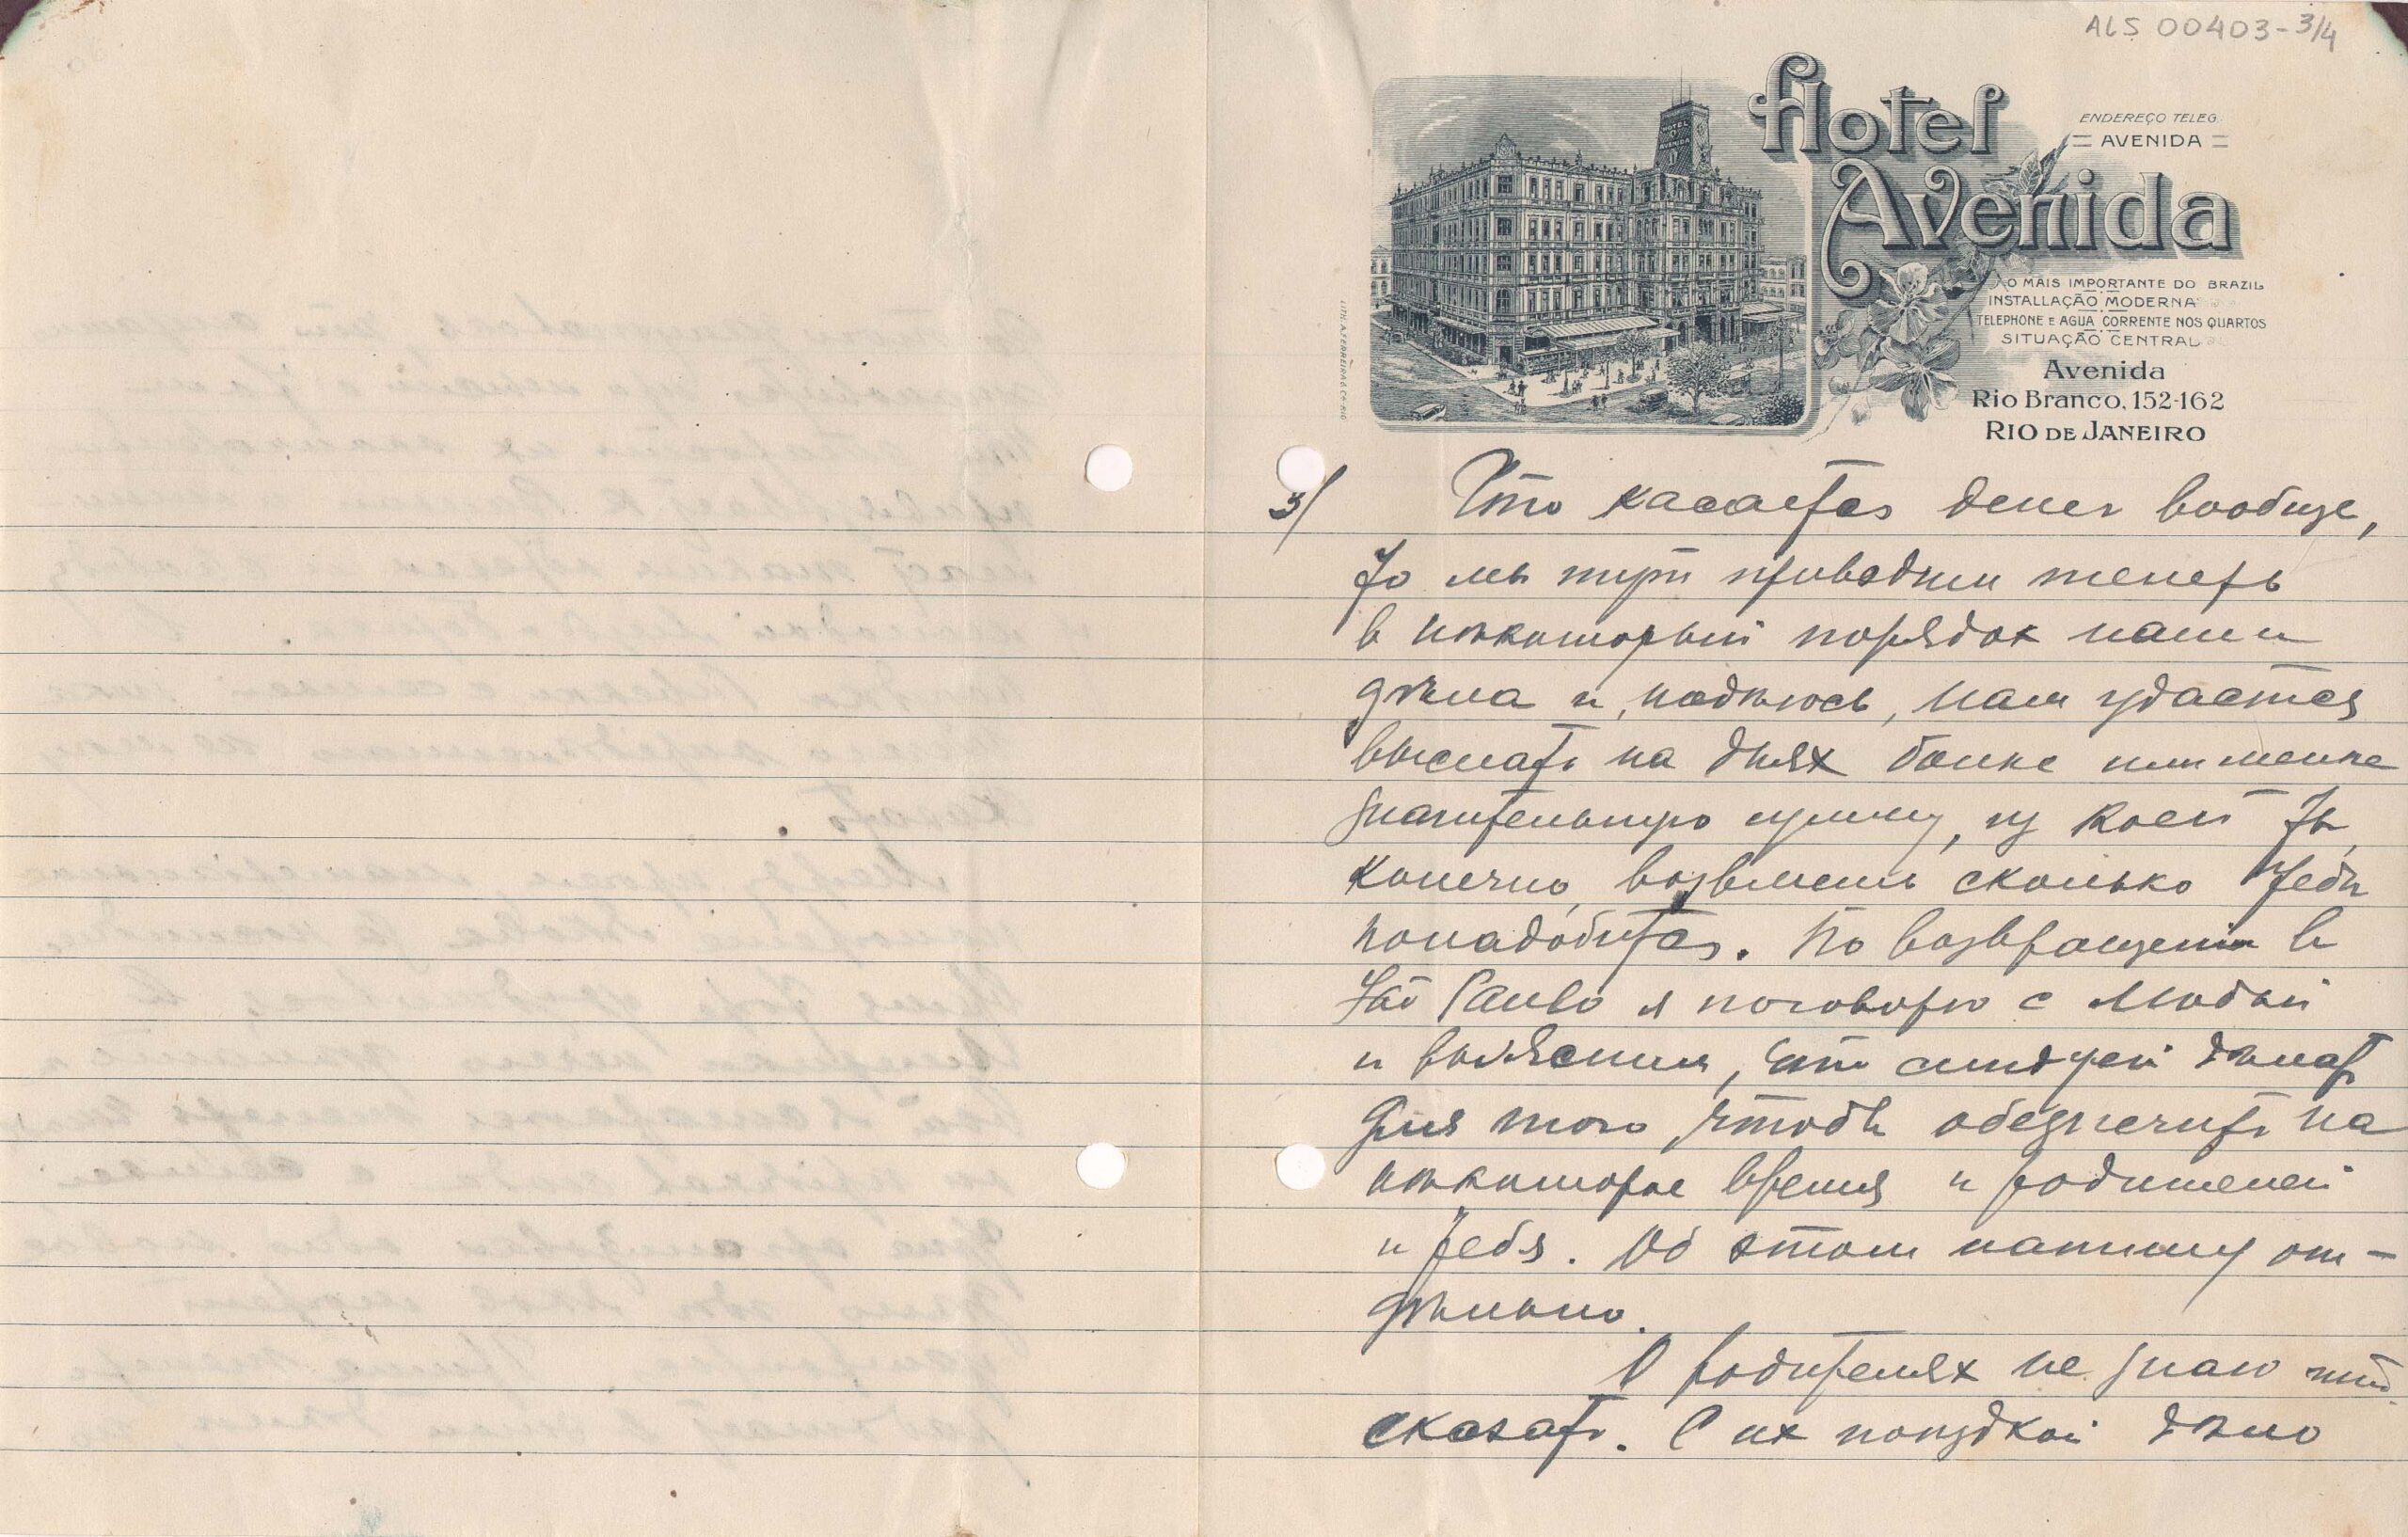 ALS 00403-3/4
Hotel
Avenida
ENDEREÇO TELEG.
AVENIDA
O MAIS IMPORTANTE DO BRAZIL
INSTALLAÇÃO MODERNA
TELEPHONE E AGUA CORRENTE NOS QUARTOS
SITUAÇÃO CENTRAL
Avenida
Rio Branco, 152-162
RIO DE JANEIRO
HOTEL AVENIDA
LITH. A. FERREIRA & Cª RIO
3/ Что касается денег вообще,
то мы тут приводим теперь
в нѣкоторый порядок наши
дѣла и, надѣюсь, нам удастся
выслать на днях болѣе или менѣе
значительную сумму, из коей Ты,
конечно, возьмешь сколько Тебѣ
понадобится. По возвращеніи в
São Paulo я поговорю с Мюдой
и выясним, что слѣдует дѣлать
для того, чтобы обезпечить на
нѣкоторое время и родителей
и Тебя. Об этом напишу от-
дѣльно.
О родителях не знаю что
сказать. С их поѣздкой дѣло